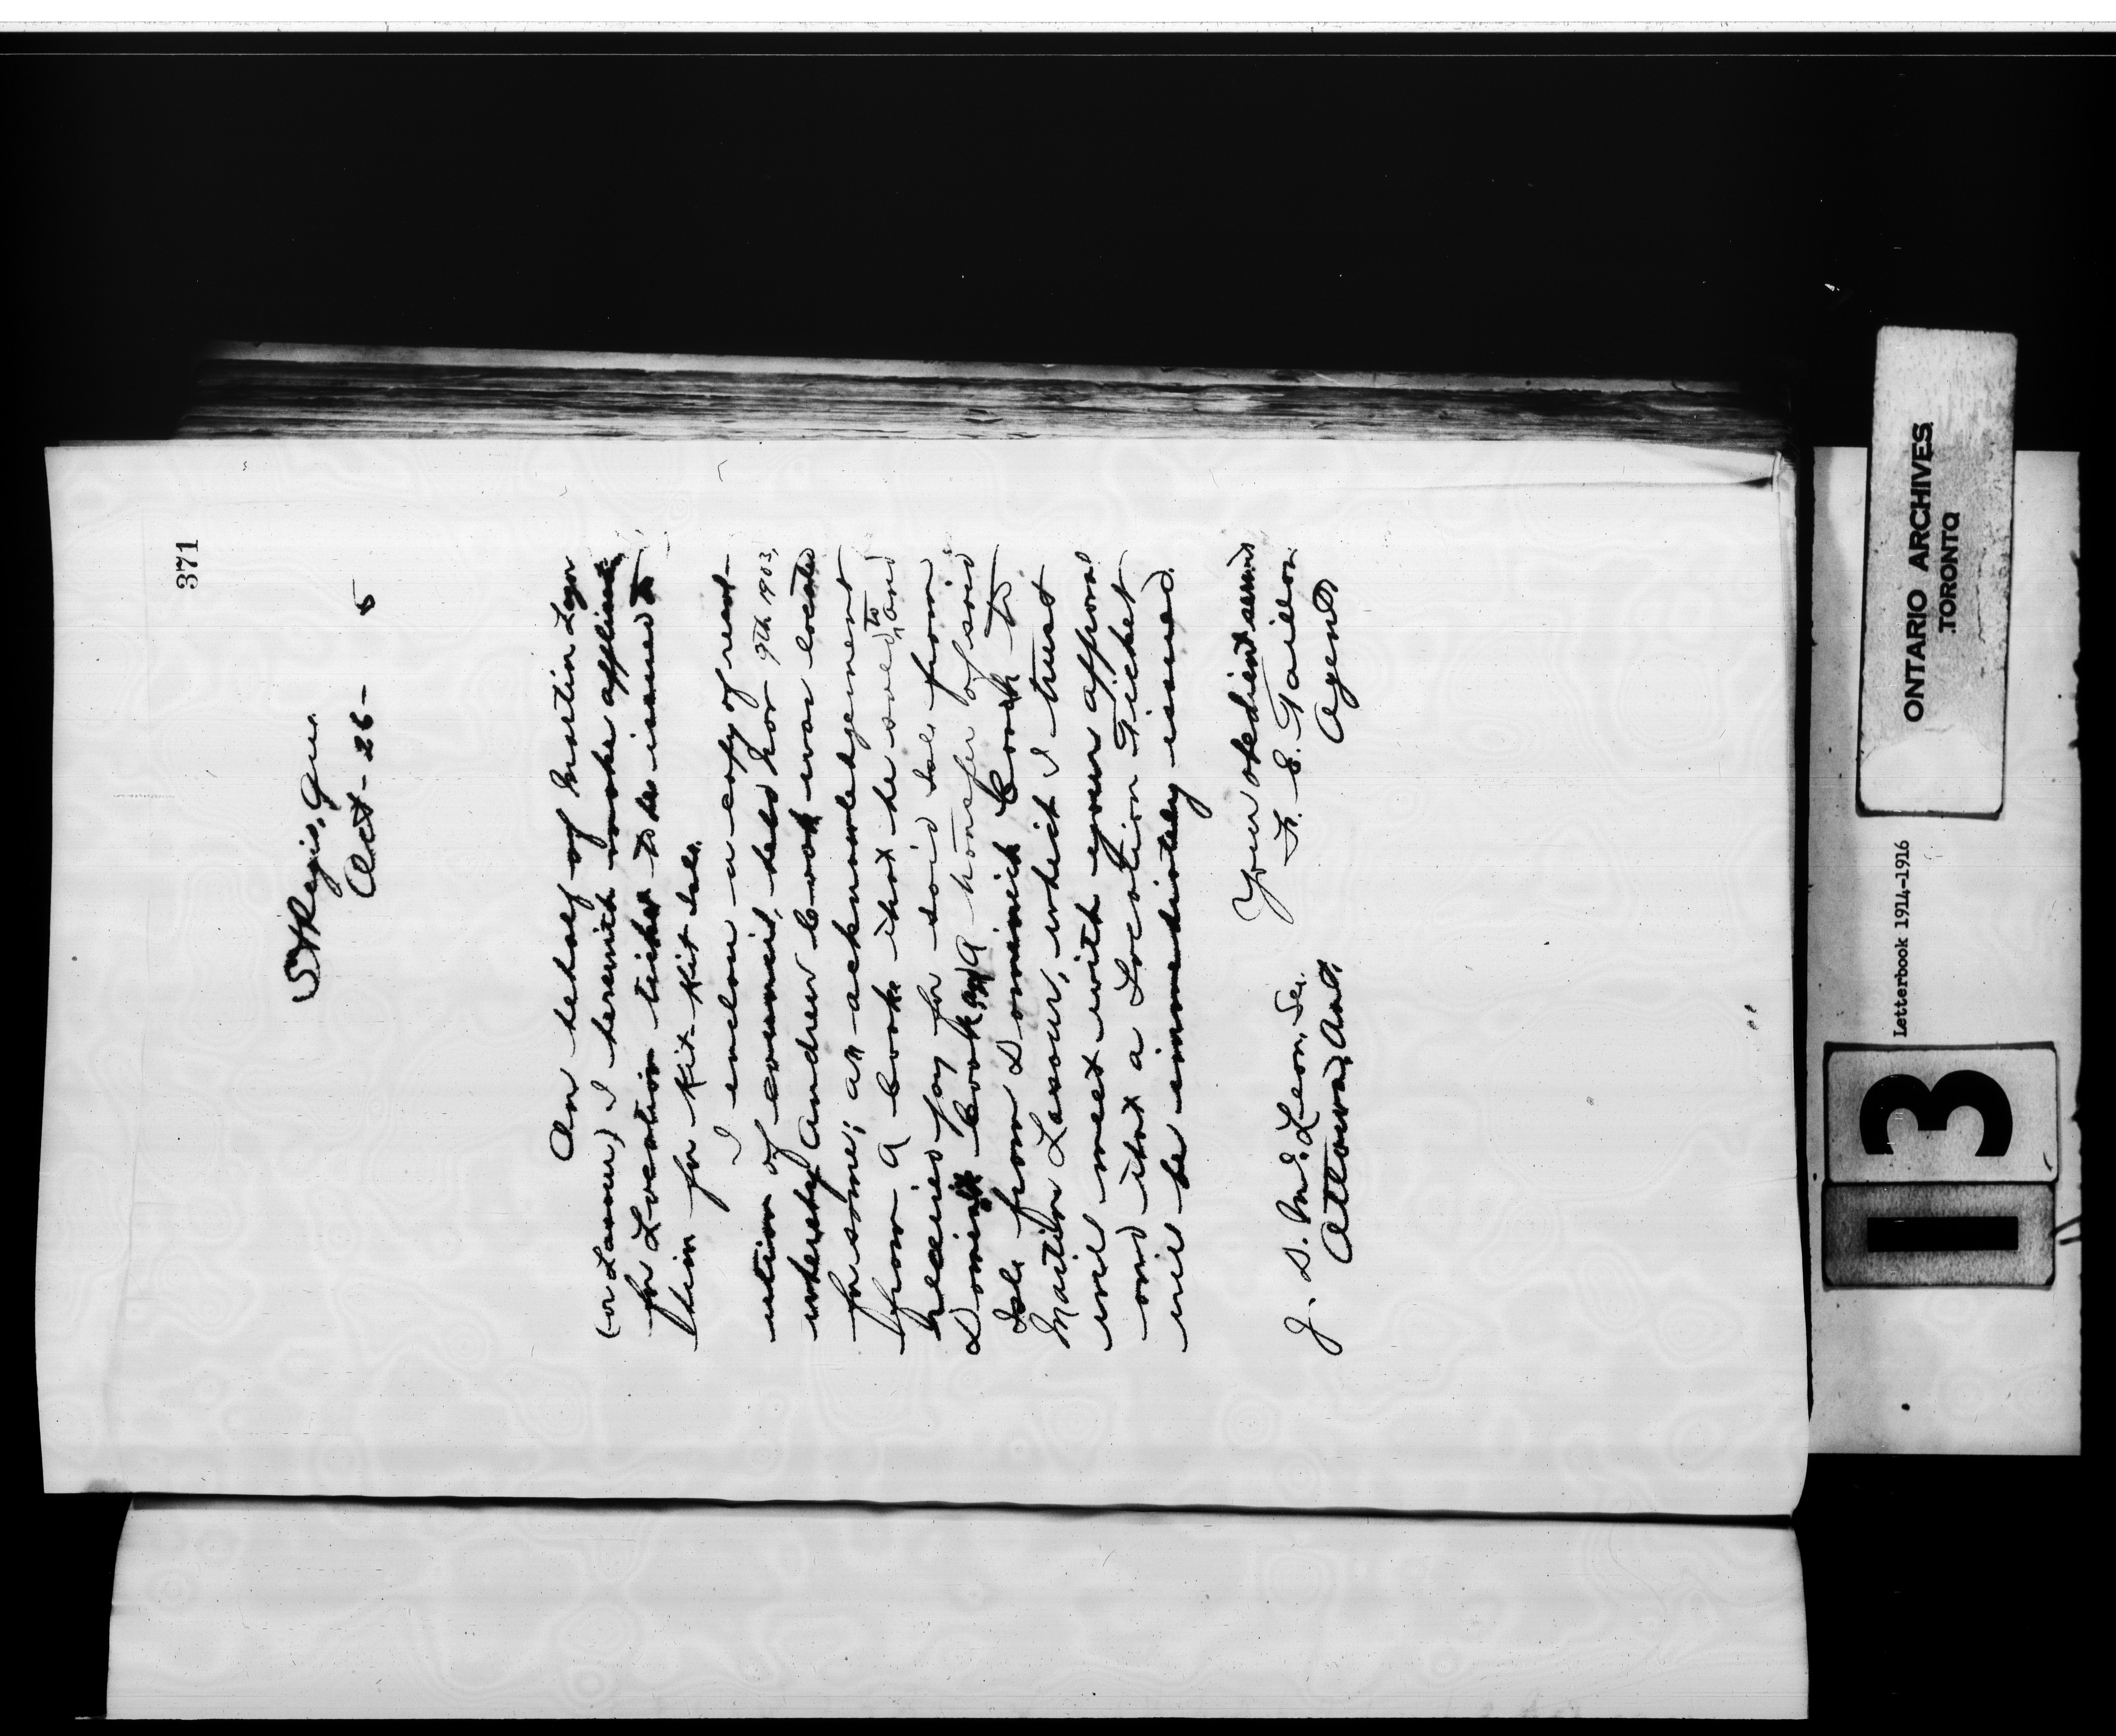 371
St Regis, Que.
Oct - 26 - 5
On behalf of Martin Lazor
(or Lazour) I herewith make application
for Location ticket to be issued to
him for Kit-Kit Isl.
I enclose a copy of resol-
ution of council, held Nov 9th 1903,
whereby Andrew Cook was located
for same; an acknowledgement
from A Cook that he sold to, and
received pay for said Isl. from
Dominick Cook, and a transfer of said
Isl. from Dominick Cook to
Martin Lazour, which I trust
will meet with your approval
and that a Location Ticket
will be immediately issued.
Your obedient servant
F. E. Taillon
Agent
J. D. McLean, Sec.
Ottawa, Ont.
ONTARIO ARCHIVES
TORONTO
Letterbook 1914-1916
13